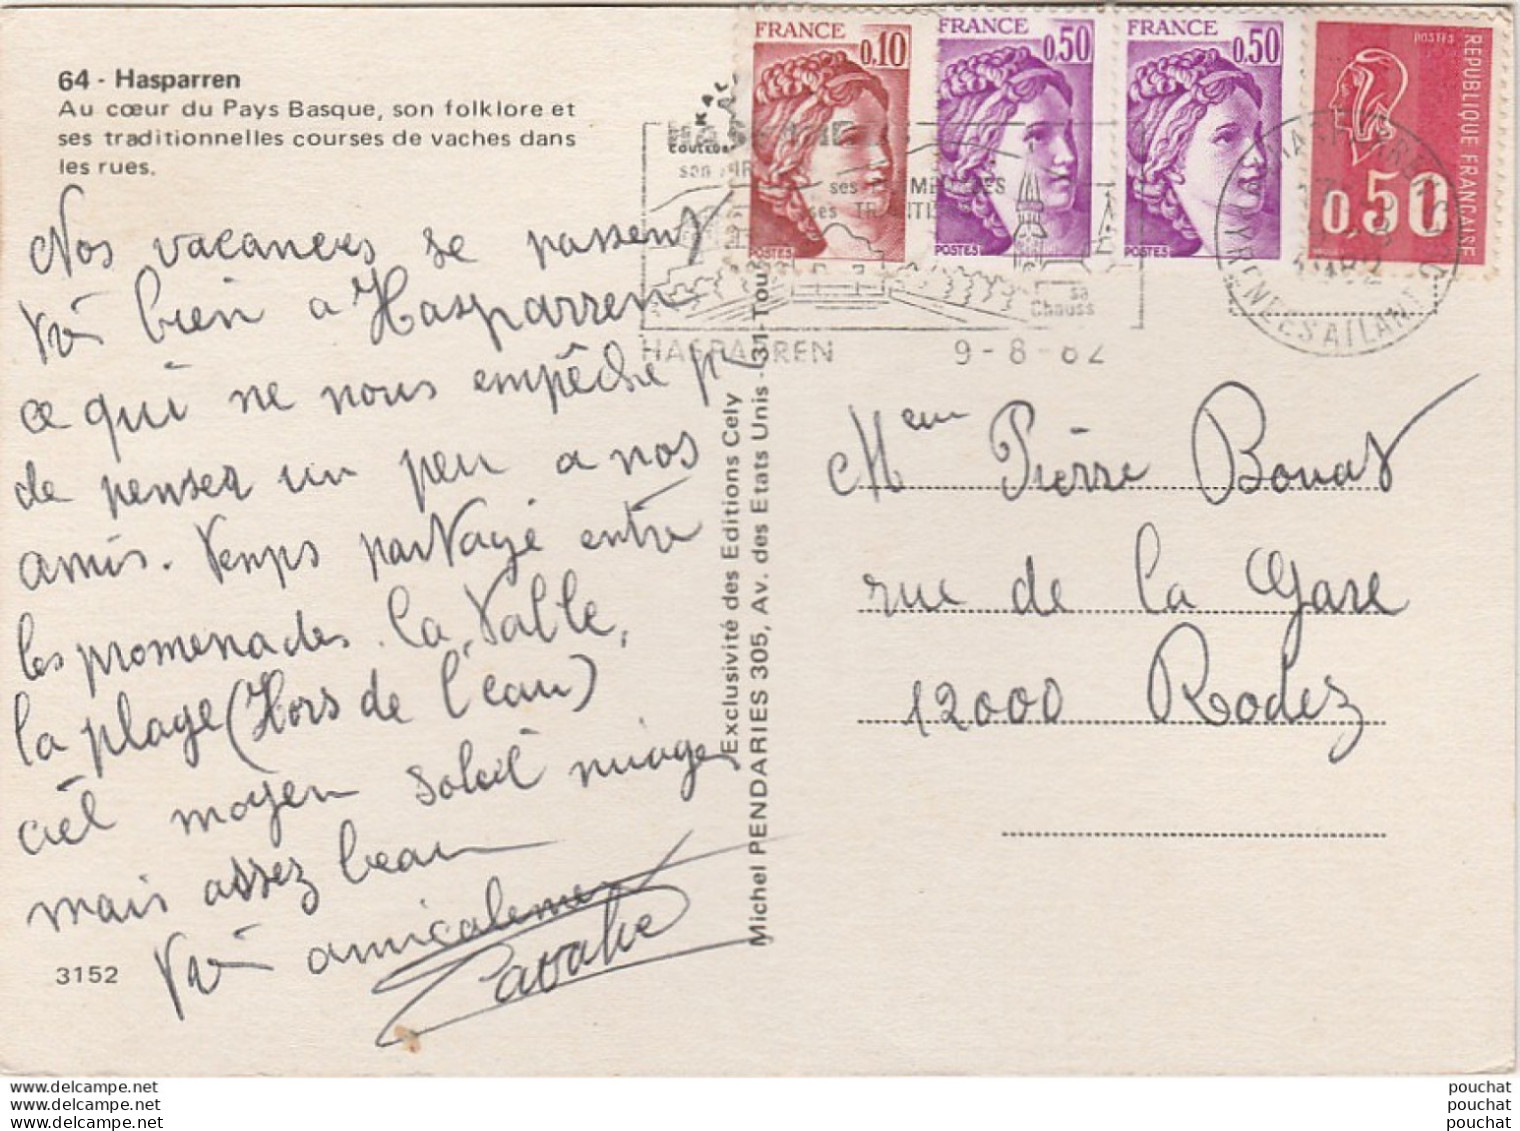 64 - Hasparren
Au cœur du Pays Basque, son folklore et
ses traditionnelles courses de vaches dans
les rues.
Nos vacances se passent
très bien a Hasparren
ce qui ne nous empêche pas
de penser un peu a nos
amis. Temps partagé entre
les promenades. la
la plage (Hors de l'eau)
ciel moyen soleil nuages
mais assez beau
Très amicalement
3152
Exclusivité des Editions Cely
Michel PENDARIES 305, Av. des Etats Unis - 31-Tou
FRANCE 0,10
POSTES
FRANCE 0,50
POSTES
FRANCE 0,50
POSTES
POSTES
REPUBLIQUE FRANCAISE
0.50
ses
ses
sa
Chauss
HASPARREN 9-8-82
HASPARREN
PYRENEES ATLANT
Pierre Bouat
rue de la Gare
12000 Rodez
www.delcampe.net
www.delcampe.net
www.delcampe.net
pouchat
pouchat
pouchat